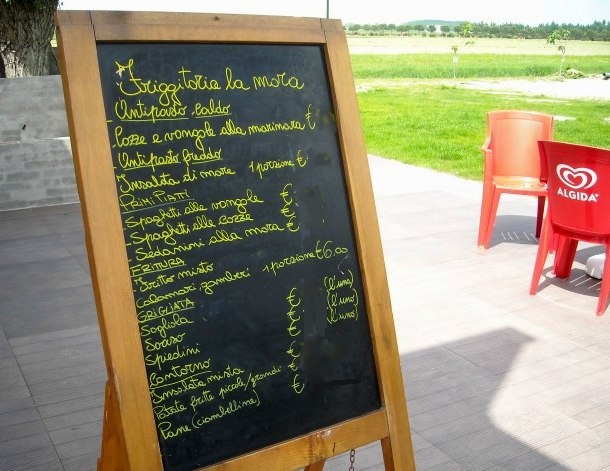 Friggitoria la mora
Antipasto caldo
Cozze e vongole alla marinara €
Antipasto freddo
Insalata di mare 1 porzione €
PRIMI PIATTI
Spaghetti alle vongole €
Spaghetti alle cozze €
Sedanini alla mora €
FRITTURA
Fritto misto 1 porzione €6.00
Calamari, gamberi
GRIGLIATA
Sogliola € (l'uno)
Sarago € (l'uno)
Spiedini € (l'uno)
Contorno
Insalata mista €
Patate fritte piccole/grandi €
Pane (ciambelline) €
ALGIDA